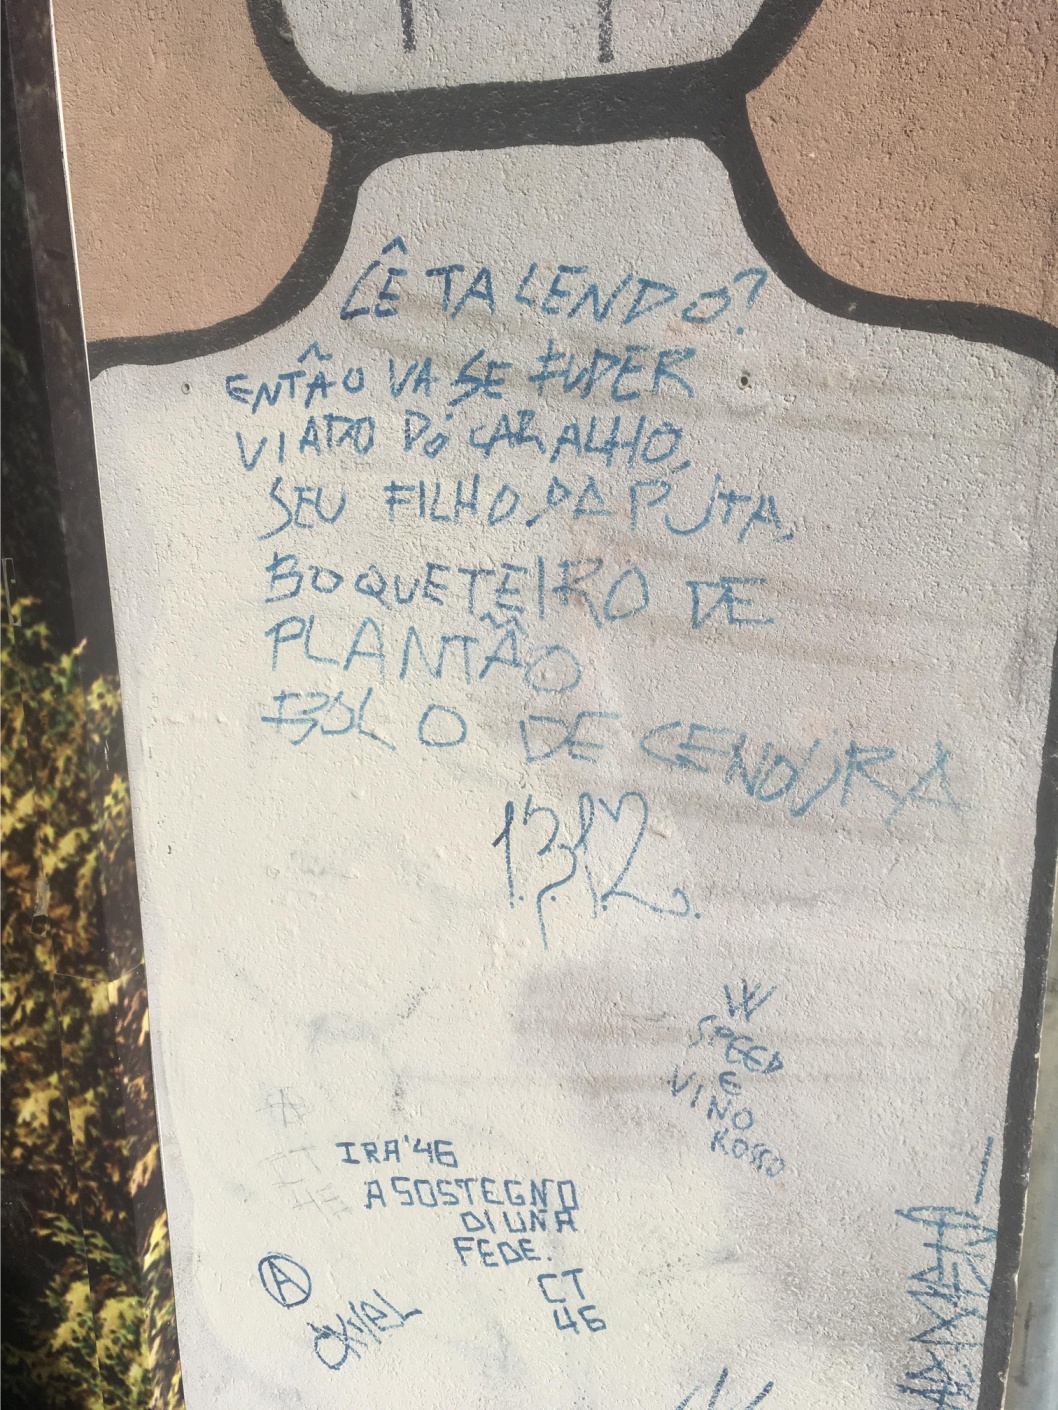 CÊ TA LENDO?
ENTÃO VA SE FUDER
VIADO DO CARALHO,
SEU FILHO DA PUTA,
BOQUETEIRO DE
PLANTÃO
BOLO DE CENOURA
1.3.1.2.
W
SPEED
E
VINO
ROSSO
IRA'46
A SOSTEGNO
DI UNA
FEDE.
CT
46
A